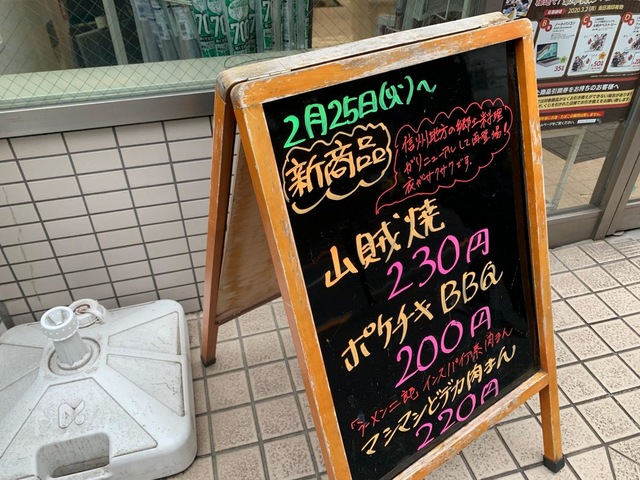 2月25日(火)~
新商品
信州地方の郷土料理
がリニューアルして再登場!
衣がサクサクです。
山賊焼
230円
ポケチキBBQ
200円
「ラーメン二郎」インスパイア系肉まん
マシマシどデカ肉まん
220円
70
70
2020.3.2(月)